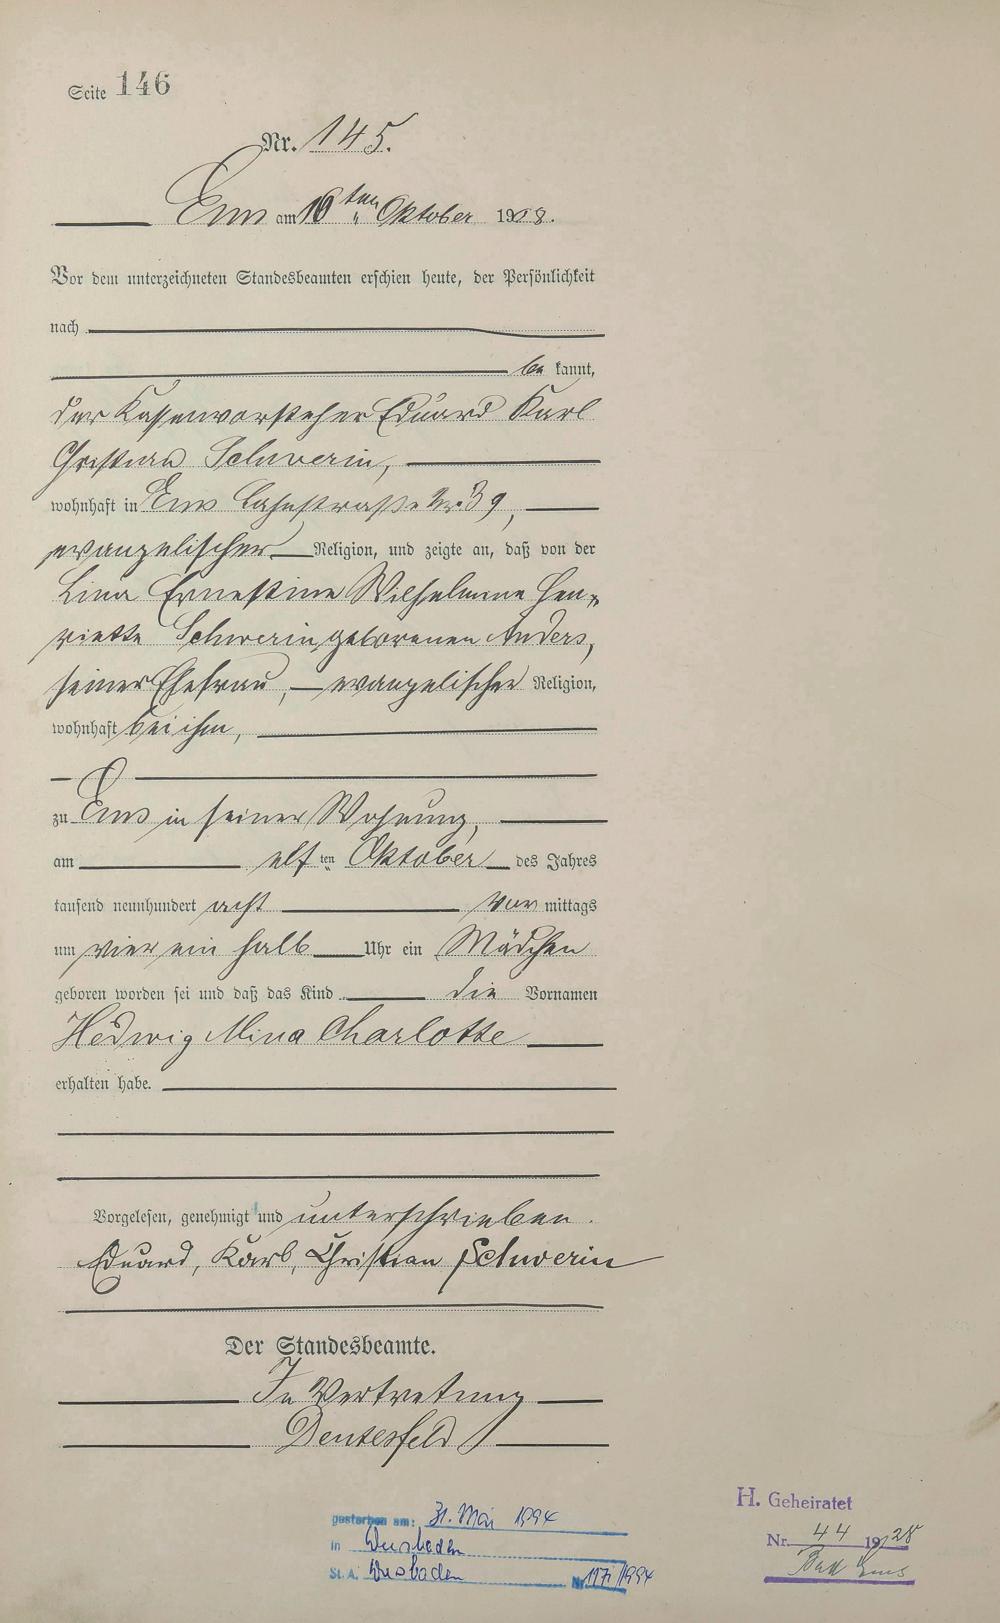 Seite 146
Nr. 145.
Ems am 16 ten Oktober 1908.
Vor dem unterzeichneten Standesbeamten erschien heute, der Persönlichkeit
nach
be kannt,
der Kassenvorsteher Eduard Karl
Christian Schwerin,
wohnhaft in Ems Lahnstrasse Nr. 39,
evangelischer Religion, und zeigte an, daß von der
Lina Ernestine Wilhelmine Hen-
riette Schwerin geborenen Anders,
seiner Ehefrau, evangelischer Religion,
wohnhaft bei ihm,
zu Ems in seiner Wohnung,
am elf ten Oktober des Jahres
tausend neunhundert acht Vor mittags
um vier ein halb Uhr ein Mädchen
geboren worden sei und daß das Kind die Vornamen
Hedwig Mina Charlotte
erhalten habe.
Vorgelesen, genehmigt und unterschrieben.
Eduard, Karl, Christian Schwerin
Der Standesbeamte.
In Vertretung
gestorben am: 31. Mai 1994
in Wiesbaden
St. A. Wiesbaden Nr. /1994
H. Geheiratet
Nr. 44 1928
Bad Ems